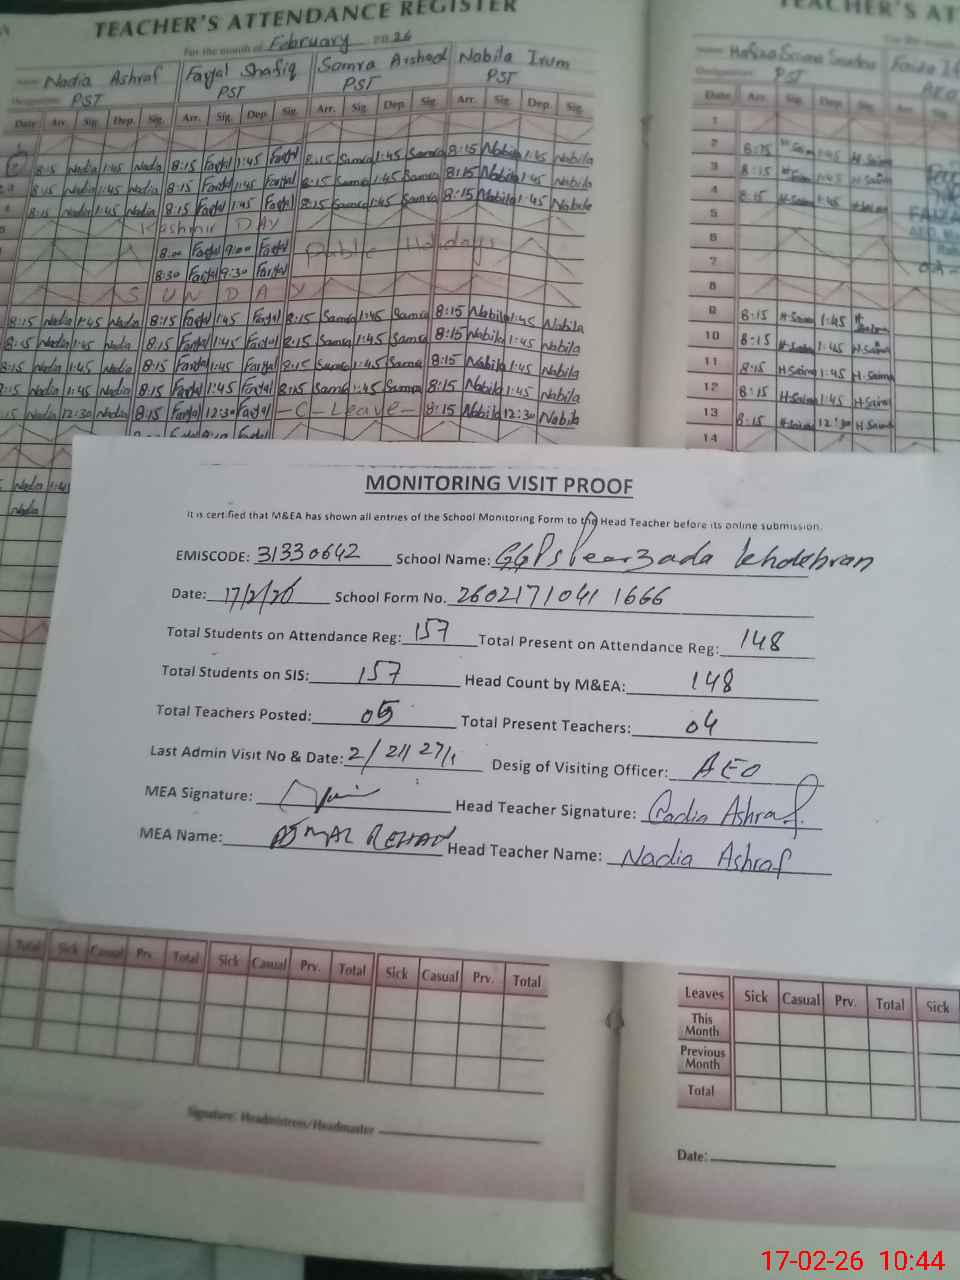 TEACHER'S ATTENDANCE REGISTER
For the month of February 2026
Name: Nadia Ashraf Faryal Shafiq Samra Arshad Nabila Irum
Designation: PST PST PST PST
Date Arr. Sig. Dep. Sig. Arr. Sig. Dep. Sig. Arr. Sig. Dep. Sig. Arr. Sig. Dep. Sig.
8:15 Nadia 1:45 Nadia 8:15 Faryal 1:45 Faryal 8:15 Samra 1:45 Samra 8:15 Nabila 1:45 Nabila
8:15 Nadia 1:45 Nadia 8:15 Faryal 1:45 Faryal 8:15 Samra 1:45 Samra 8:15 Nabila 1:45 Nabila
8:15 Nadia 1:45 Nadia 8:15 Faryal 1:45 Faryal 8:15 Samra 1:45 Samra 8:15 Nabila 1:45 Nabila
Kashmir DAY
8:00 Faryal 9:00 Faryal Public Holidays
8:30 Faryal 9:30 Faryal
SUNDAY
8:15 Nadia 1:45 Nadia 8:15 Faryal 1:45 Faryal 8:15 Samra 1:45 Samra 8:15 Nabila 1:45 Nabila
8:15 Nadia 1:45 Nadia 8:15 Faryal 1:45 Faryal 8:15 Samra 1:45 Samra 8:15 Nabila 1:45 Nabila
8:15 Nadia 1:45 Nadia 8:15 Faryal 1:45 Faryal 8:15 Samra 1:45 Samra 8:15 Nabila 1:45 Nabila
8:15 Nadia 1:45 Nadia 8:15 Faryal 1:45 Faryal 8:15 Samra 1:45 Samra 8:15 Nabila 1:45 Nabila
:15 Nadia 12:30 Nadia 8:15 Faryal 12:30 Faryal - C - Leave - 8:15 Nabila 12:30 Nabila
Nadia 1:45
Nadia
TEACHER'S AT
Name: Hafiza Saima
Designation: PST AEO
Date Arr. Sig. Dep. Sig. Arr. Sig.
1
2 8:15 H Saima 1:45 H Saima
3 8:15 H Saima 1:45 H Saima
4 8:15 H Saima 1:45 H Saima
5
6
7
8
9 8:15 H Saima 1:45 H Saima
10 8:15 H Saima 1:45 H Saima
11 8:15 H Saima 1:45 H. Saima
12 8:15 H Saima 1:45 H Saima
13 8:15 H Saima 12:30 H Saima
14
MONITORING VISIT PROOF
It is certified that M&EA has shown all entries of the School Monitoring Form to the Head Teacher before its online submission.
EMISCODE: 31330642 School Name: GGPS Peerzada Khodebran
Date: 17/2/26 School Form No. 2602171041 1666
Total Students on Attendance Reg: 157 Total Present on Attendance Reg: 148
Total Students on SIS: 157 Head Count by M&EA: 148
Total Teachers Posted: 05 Total Present Teachers: 04
Last Admin Visit No & Date: 2/ 21/ 27/1 Desig of Visiting Officer: AEO
MEA Signature: Head Teacher Signature: Nadia Ashraf
MEA Name: AJMAL REHAN Head Teacher Name: Nadia Ashraf
Total Sick Casual Prv. Total Sick Casual Prv. Total Sick Casual Prv. Total
Signature: Headmistress/Headmaster
Leaves Sick Casual Prv. Total Sick
This Month
Previous Month
Total
Date:
17-02-26 10:44